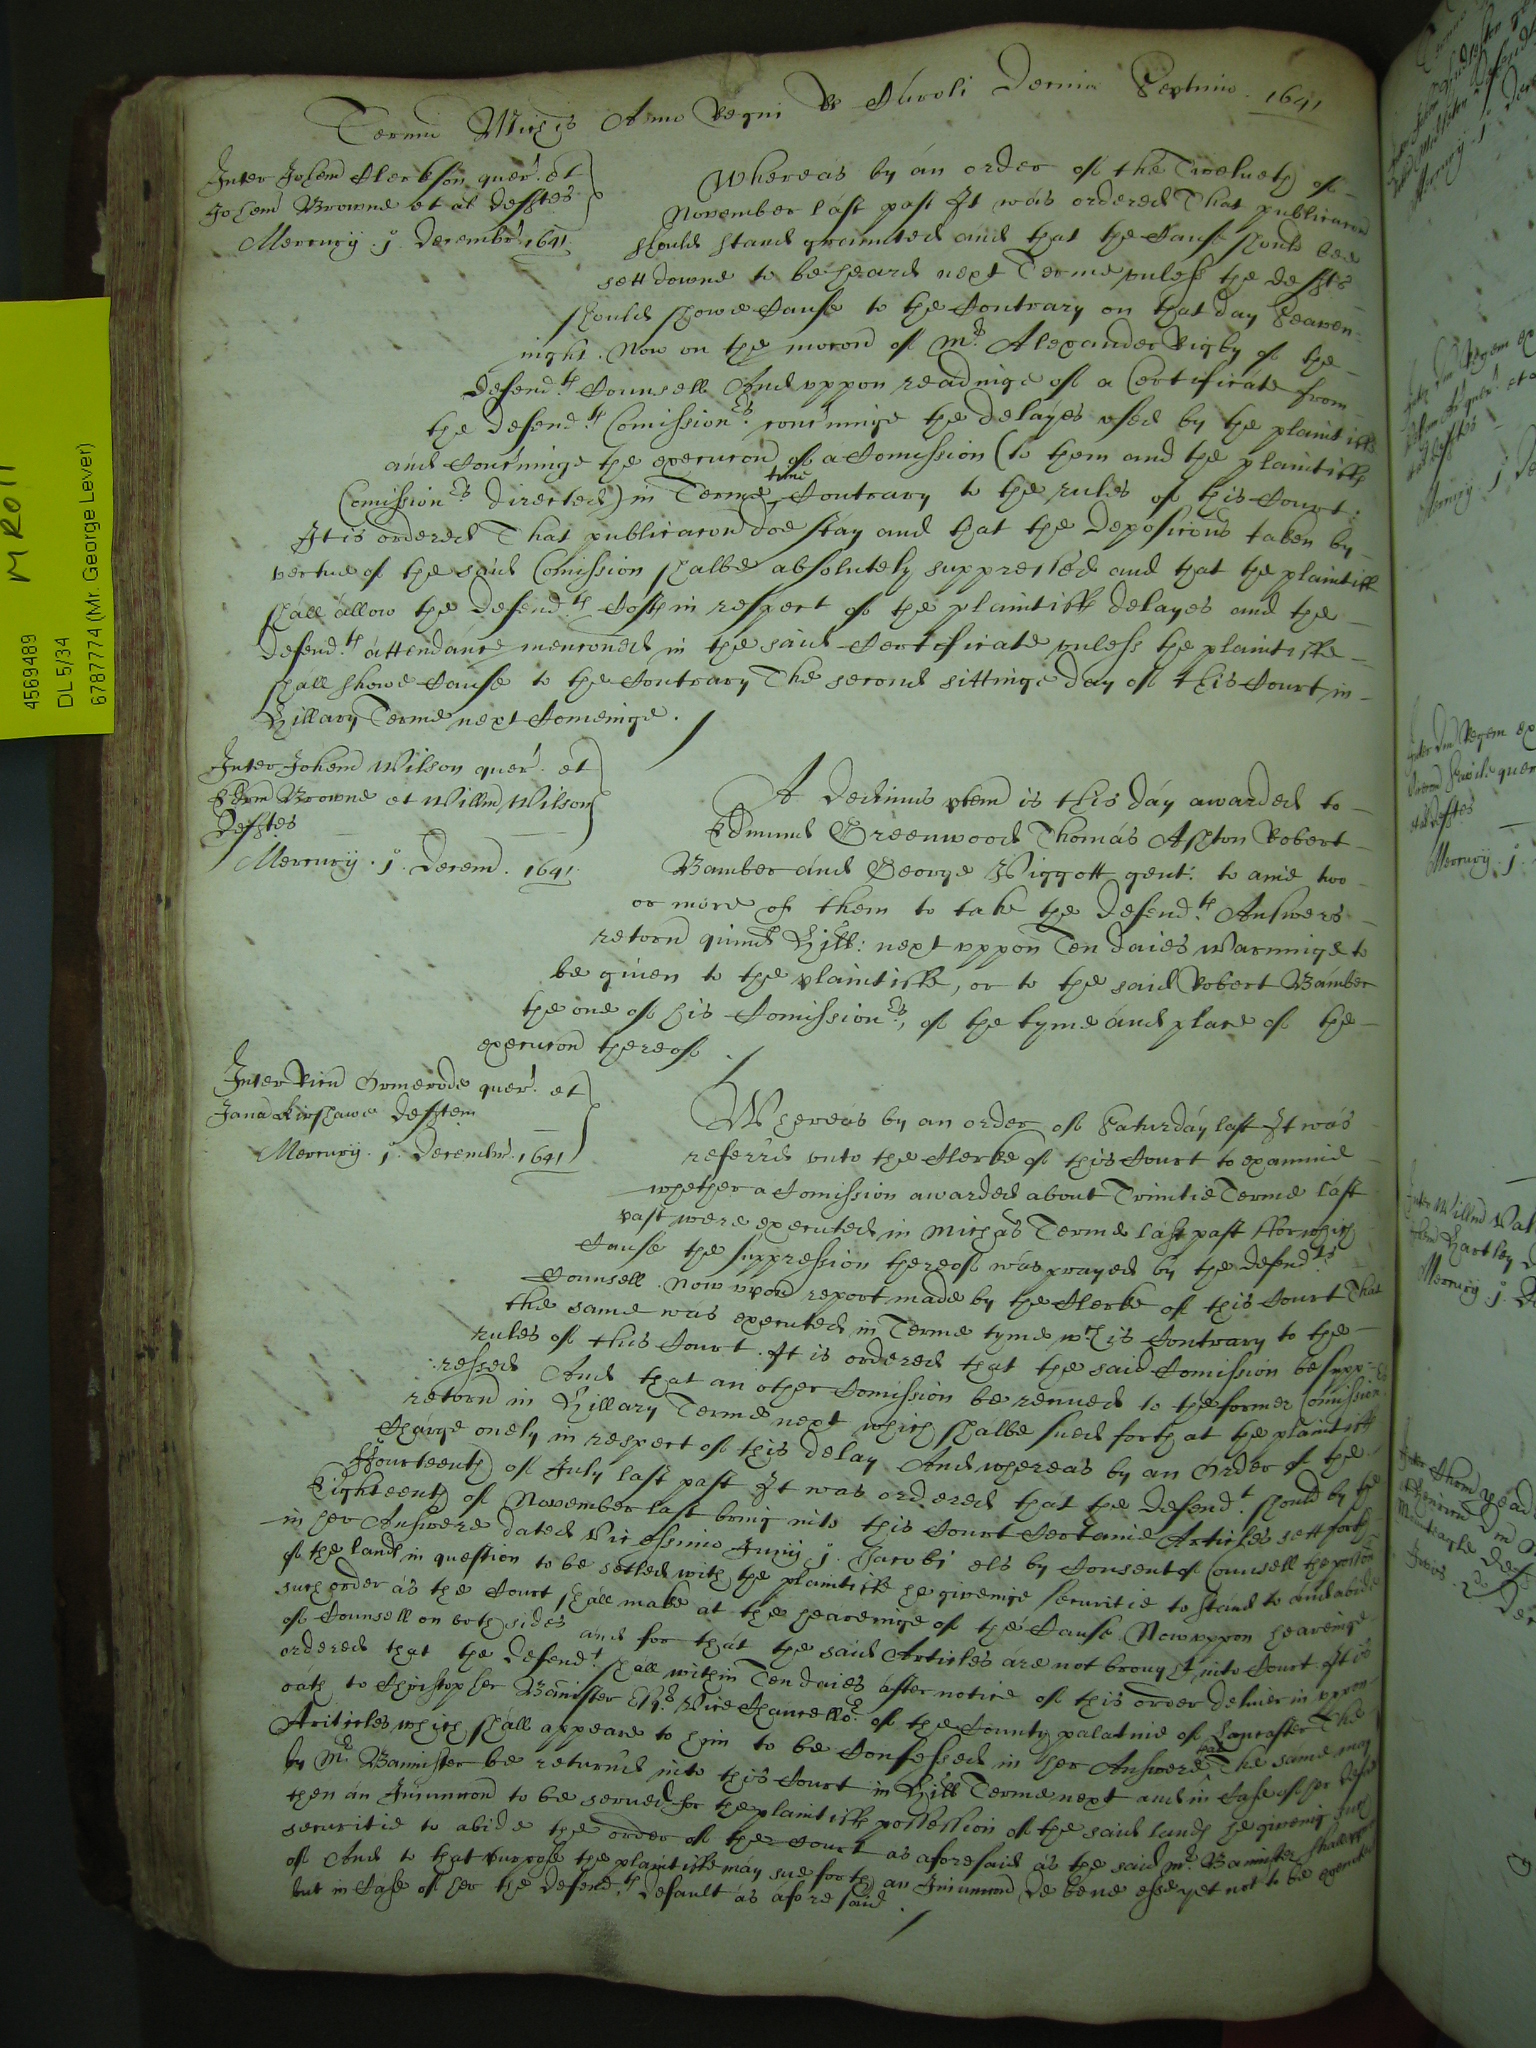 Termi Michis Anno Regni Rs Caroli Decimo Septimo. 1641
Inter Johem Clerkson quer. et
Johem Browne et al defftes
Mercurij. j°. Decembr. 1641.
Whereas by an order of the Twelveth of
November last past It was ordered That publicacon
should stand graunted and that the Cause should bee
sett downe to be heard next Terme vnless the deffts
should showe Cause to the Contrary on that day Seaven
night. Now on the mocon of Mr. Alexander Rigby of the
defendts Counsell And vppon readinge of a Certificate from
the defendts Comissionrs. concrninge the delayes vsed by the plaintiffe
and Concrninge the execucon of a Comission (to them and the plaintiffs
Comissionrs directed) in Terme time Contrary to the rules of this Court:
It is ordered That publicacon doe stay and that the deposicons taken by
vertue of the said Comission shalbe absolutely suppressed and that the plaintiff
shall allow the defendts Costs in respect of the plaintiffs delayes and the
defendts attendance menconed in the said Certificate vnless the plaintiffe
shall showe Cause to the Contrary The second sittinge day of this Court in
Hillary Terme next Comeinge.
Inter Johem Wilson quer. et
Edm Browne et Willm Wilson
Defftes
Mercurij. j°. Decem. 1641.
A dedimus ptem is this day awarded to
Edmund Greenwood Thomas Ashton Robert
Bamber and George Piggott gent: to anie two
or more of them to take the defendts Answers
retorn quind Hill: next vppon Ten daies warninge to
be given to the plaintiffe, or to the said Robert Bamber
the one of his Comissionrs, of the tyme and place of the
execucon thereof.
Inter Ricu Ormerode quer. et
Jana Kirshawe defftem
Mercurij. j°. Decembr. 1641
Whereas by an order of Saturday last It was
referrd vnto the Clerke of this Court to examine
whether a Comission awarded about Trinitie Terme last
past were executed in Michas Terme last past ffor which
Cause the suppression thereof was prayed by the defendts
Counsell. Now vpon report made by the Clerke of this Court That
the same was executed in Terme tyme wch is Contrary to the
rules of this Court. It is ordered that the said Comission be supp-
ressed And that an other Comission be renued to the former Comissionrs
retorn in Hillary Terme next which shalbe sued forth at the plaintiffs
Charge onely in respect of this delay And whereas by an Order of the
ffourteenth of July last past It was ordered that the defendt. should by the
Eighteenth of November last bring into this Court Certaine Articles sett forth
in her Answere dated Vicessimo Junij j°. Jacobi els by Consent of Counsell the possion
of the lands in question to be setled with the plaintiffe he giveinge securitie to stand to and abide
such order as the Court shall make at the heareinge of the Cause. Now vppon heareinge
of Counsell on both sides and for that the said Articles are not brought into Court. It is
ordered that the defendt. shall within Ten daies after notice of this order deliver in vppon
oath to Christopher Banister Esqr. Vice Chancellor. of the County palatine of Lancaster The
Articles which shall appeare to him to be Confessed in her Answere That The same may
by Mr. Bannister be returnd into this Court in Hill Terme next and in Case of her default
then an Iniunccon to be served for the plaintiffs possession of the said lands he giveing such
securitie to abide the order of the Court as aforesaid as the said Mr. Bannister shall approve
of And to that purpose the plaintiffe may sue forth an Iniunccon de bene esse yet not to be executed
but in Case of her the defendts default as aforesaid.
4569489
DL 5/34
6787774 (Mr. George Lever)